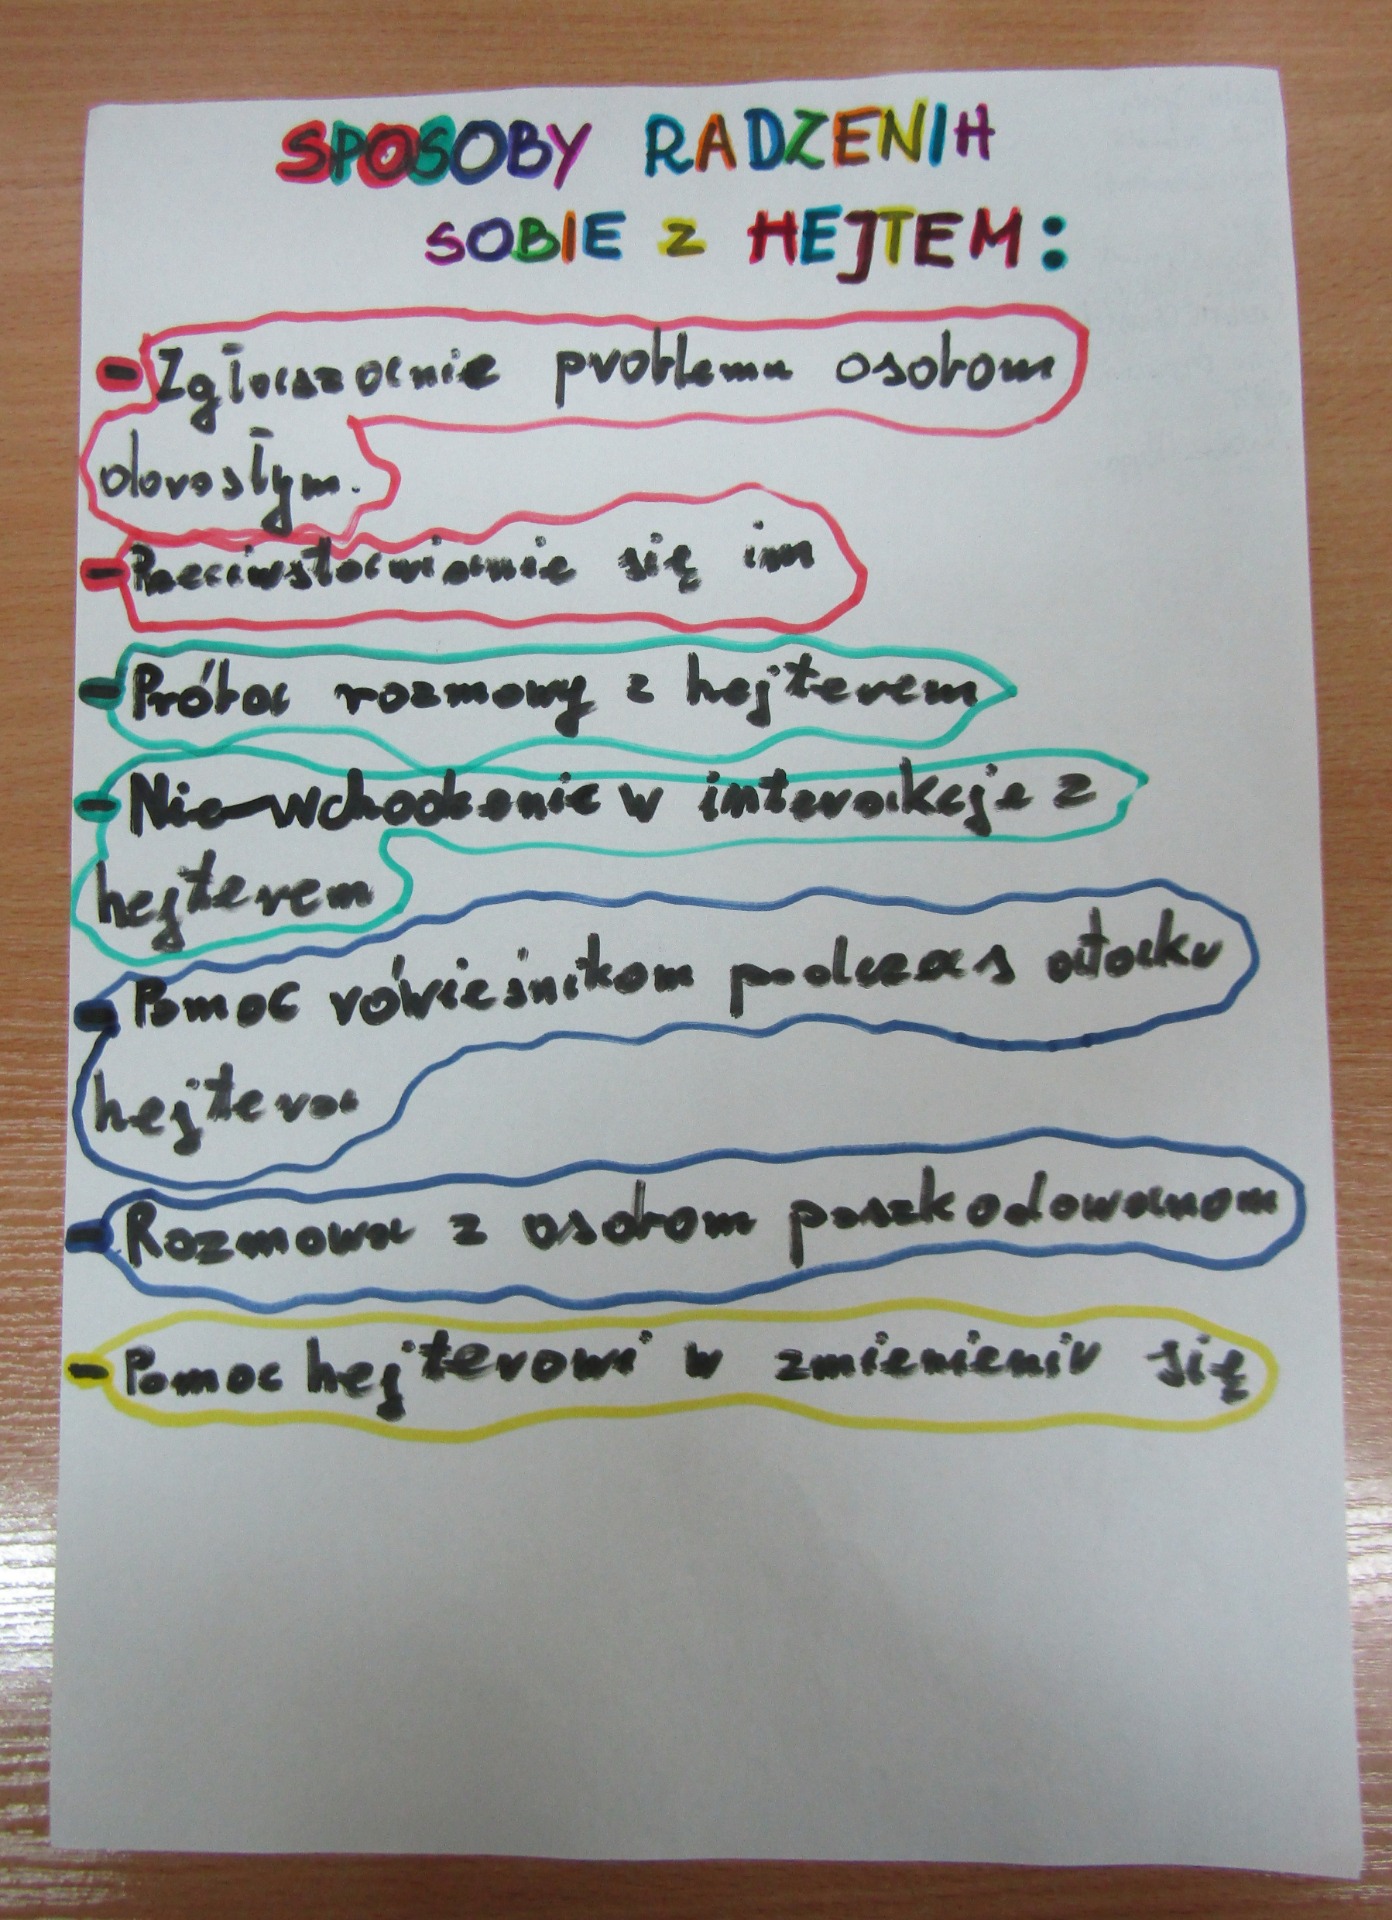 SPOSOBY RADZENIA
SOBIE Z HEJTEM:
- Zgłaszanie problemu osobom
dorosłym.
- Przeciwstawianie się im
- Próba rozmowy z hejterem
- Nie wchodzenie w interakcje z
hejterem
- Pomoc rówieśnikom podczas ataku
hejtera
- Rozmowa z osobom poszkodowanom
- Pomoc hejterowi w zmienieniu się